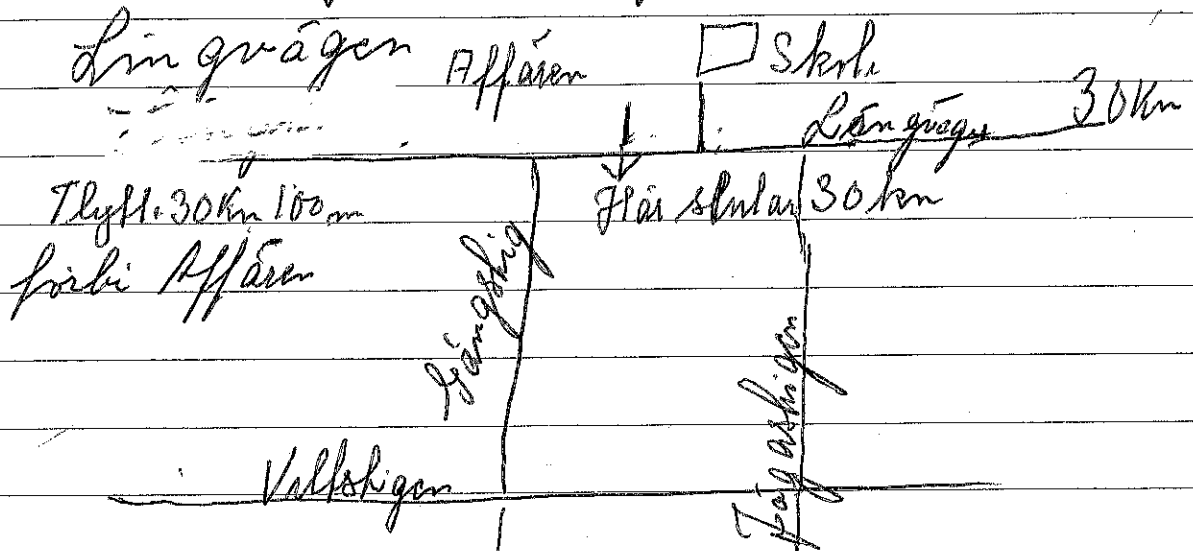 Lingvägen
Affären
Skola
Lingvägen
30 Km
Flytta 30 Km 100 m
förbi Affären
Här slutar 30 km
Gångstig
Vallstigen